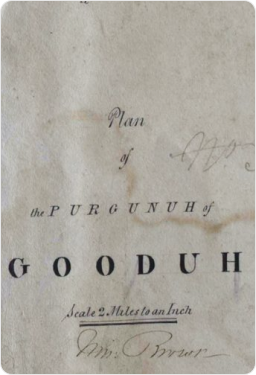 Plan
of
the PURGUNUH of
GOODUH
Scale 2 Miles to an Inch
Brown